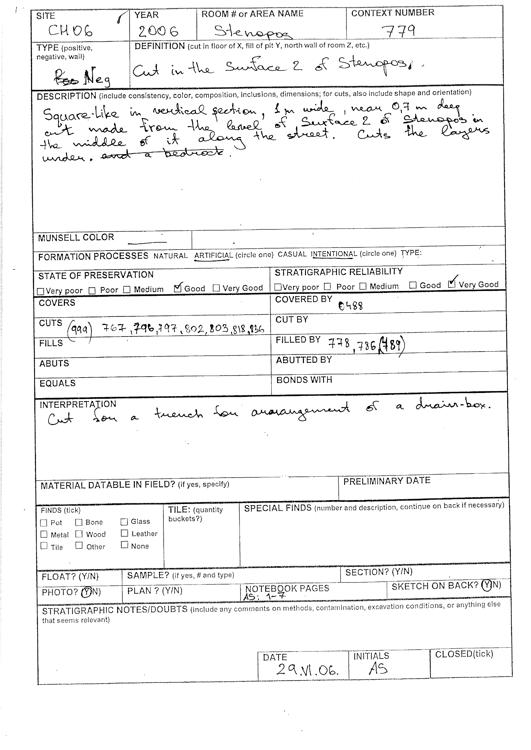 SITE YEAR ROOM # or AREA NAME CONTEXT NUMBER
CH06 2006 Stenopos 779
TYPE (positive, negative, wall) DEFINITION (cut in floor of X, fill of pit Y, north wall of room Z, etc.)
Neg Cut in the Surface 2 of Stenopos.
DESCRIPTION (include consistency, color, composition, inclusions, dimensions; for cuts, also include shape and orientation)
Square-like in vertical section, 1 m wide, near 0,7 m deep
cut made from the level of Surface 2 of Stenopos in
the middle of it along the street. Cuts the layers
under. and a bedrock.
MUNSELL COLOR
FORMATION PROCESSES NATURAL ARTIFICIAL (circle one) CASUAL INTENTIONAL (circle one) TYPE:
STATE OF PRESERVATION STRATIGRAPHIC RELIABILITY
Very poor Poor Medium Good Very Good Very poor Poor Medium Good Very Good
COVERS COVERED BY 0488
CUTS (999) 767, 796, 797, 802, 803, 818, 836 CUT BY
FILLS FILLED BY 778, 786, (789)
ABUTS ABUTTED BY
EQUALS BONDS WITH
INTERPRETATION
Cut for a trench for ararangement of a drain-box.
MATERIAL DATABLE IN FIELD? (if yes, specify) PRELIMINARY DATE
FINDS (tick) TILE: (quantity buckets?) SPECIAL FINDS (number and description, continue on back if necessary)
Pot Bone Glass
Metal Wood Leather
Tile Other None
FLOAT? (Y/N) SAMPLE? (if yes, # and type) SECTION? (Y/N)
PHOTO? (Y/N) PLAN ? (Y/N) NOTEBOOK PAGES AS: 1-7 SKETCH ON BACK? (Y/N)
STRATIGRAPHIC NOTES/DOUBTS (include any comments on methods, contamination, excavation conditions, or anything else
that seems relevant)
DATE INITIALS CLOSED(tick)
29.VI.06. AS